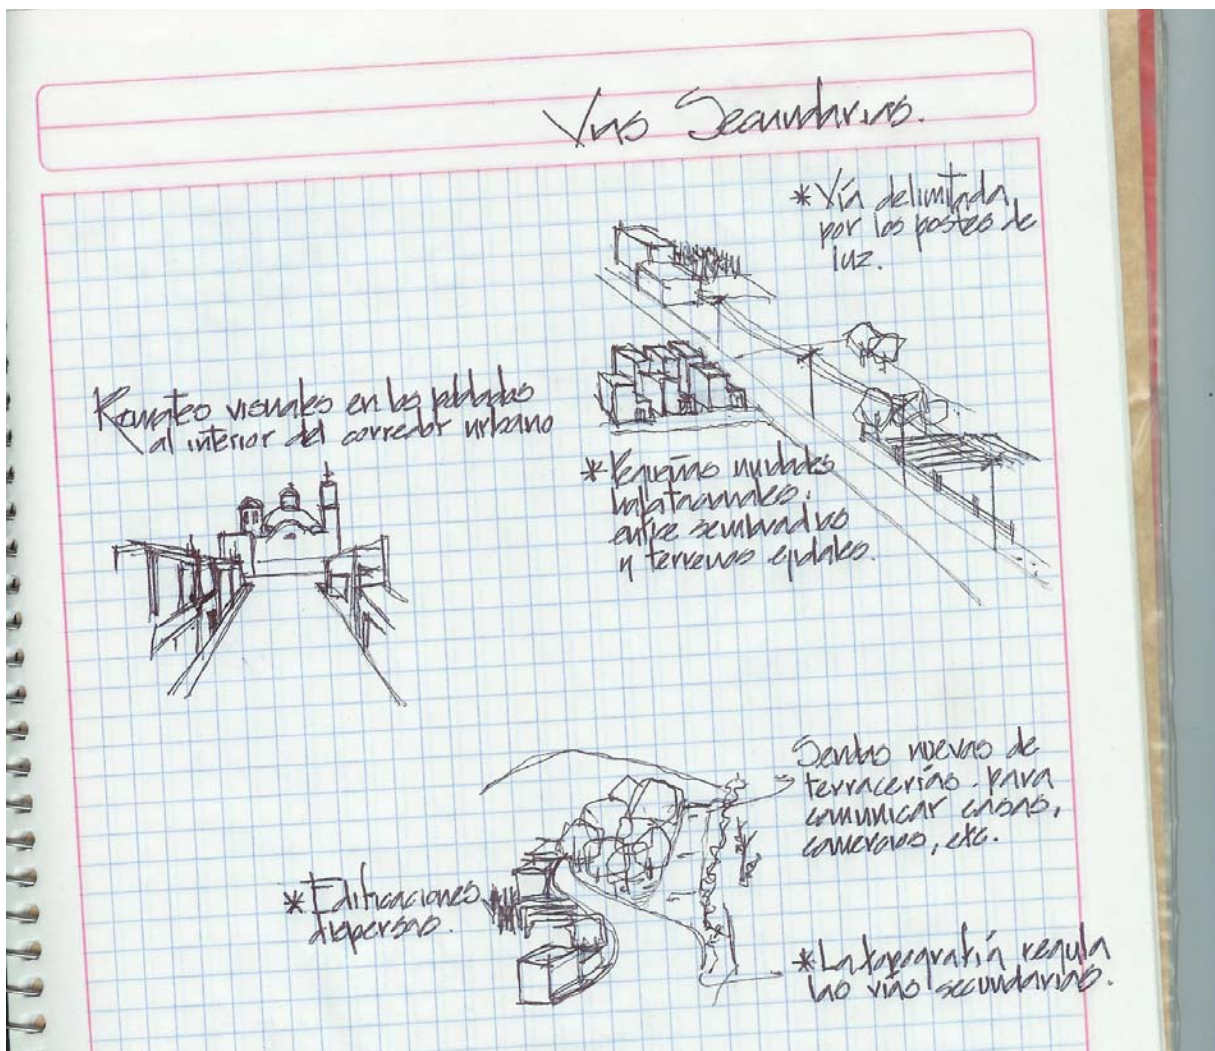 Vias Secundarias.
* Vía delimitada
por los postes de
luz.
Remates visuales en los poblados
al interior del corredor urbano
* Pequeñas unidades
habitacionales.
entre sembradios
y terrenos ejidales.
Sendas nuevas de
terracerías. para
comunicar casas,
comercios, etc.
* Edificaciones
dispersas.
* La topografía regula
las vías secundarias.